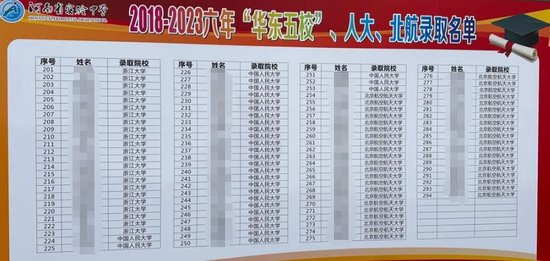 河南省实验中学
HENAN EXPERIMENTAL HIGH SCHOOL
2018-2023六年“华东五校”、人大、北航录取名单
序号 姓名 录取院校
201 浙江大学
202 浙江大学
203 浙江大学
204 浙江大学
205 浙江大学
206 浙江大学
207 浙江大学
208 浙江大学
209 浙江大学
210 浙江大学
211 浙江大学
212 浙江大学
213 浙江大学
214 浙江大学
215 浙江大学
216 浙江大学
217 浙江大学
218 浙江大学
219 浙江大学
220 浙江大学
221 浙江大学
222 浙江大学
223 浙江大学
224 中国人民大学
225 中国人民大学
序号 姓名 录取院校
226 中国人民大学
227 中国人民大学
228 中国人民大学
229 中国人民大学
230 中国人民大学
231 中国人民大学
232 中国人民大学
233 中国人民大学
234 中国人民大学
235 中国人民大学
236 中国人民大学
237 中国人民大学
238 中国人民大学
239 中国人民大学
240 中国人民大学
241 中国人民大学
242 中国人民大学
243 中国人民大学
244 中国人民大学
245 中国人民大学
246 中国人民大学
247 中国人民大学
248 中国人民大学
249 中国人民大学
250 中国人民大学
序号 姓名 录取院校
251 中国人民大学
252 中国人民大学
253 中国人民大学
254 北京航空航天大学
255 北京航空航天大学
256 北京航空航天大学
257 北京航空航天大学
258 北京航空航天大学
259 北京航空航天大学
260 北京航空航天大学
261 北京航空航天大学
262 北京航空航天大学
263 北京航空航天大学
264 北京航空航天大学
265 北京航空航天大学
266 北京航空航天大学
267 北京航空航天大学
268 北京航空航天大学
269 北京航空航天大学
270 北京航空航天大学
271 北京航空航天大学
272 北京航空航天大学
273 北京航空航天大学
274 北京航空航天大学
275 北京航空航天大学
序号 姓名 录取院校
276 北京航空航天大学
277 北京航空航天大学
278 北京航空航天大学
279 北京航空航天大学
280 北京航空航天大学
281 北京航空航天大学
282 北京航空航天大学
283 北京航空航天大学
284 北京航空航天大学
285 北京航空航天大学
286 北京航空航天大学
287 北京航空航天大学
288 北京航空航天大学
289 北京航空航天大学
290 北京航空航天大学
291 北京航空航天大学
292 北京航空航天大学
293 北京航空航天大学
294 北京航空航天大学